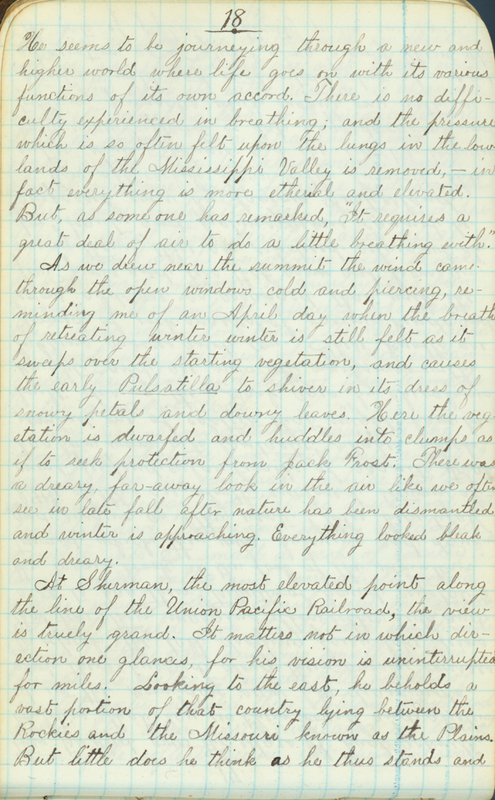 18
He seems to be journeying through a new and
higher world where life goes on with its various
functions of its own accord. There is no diffi-
culty experienced in breathing; and the pressure
which is so often felt upon the lungs in the low
lands of the Mississippi Valley is removed,- in
fact everything is more etherial and elevated.
But, as some one has remarked, "It requires a
great deal of air to do a little breathing with."
As we drew near the summit the wind came
through the open windows cold and piercing, re-
minding me of an April day when the breath
of retreating winter winter is still felt as it
sweeps over the starting vegetation, and causes
the early Pulsatilla to shiver in its dress of
snowy petals and downy leaves. Here the veg-
etation is dwarfed and huddles into clumps as
if to seek protection from jack Frost. There was
a dreary, far-away look in the air like we often
see in late fall after nature has been dismantled
and winter is approaching. Everything looked bleak
and dreary.
At Sherman, the most elevated point along
the line of the Union Pacific Railroad, the view
is truely grand. It matters not in which dir-
ection one glances, for his vision is uninterrupted
for miles. Looking to the east, he beholds a
vast portion of that country lying between the
Rockies and the Missouri known as the Plains.
But little does he think as he thus stands and